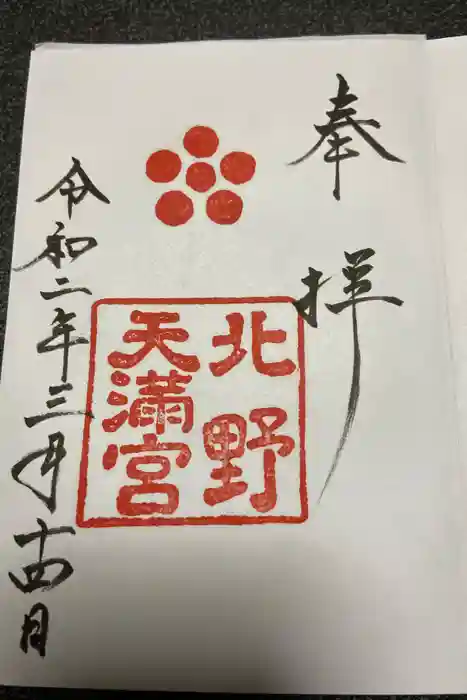 奉拝
北野
天満宮
令和二年三月十四日